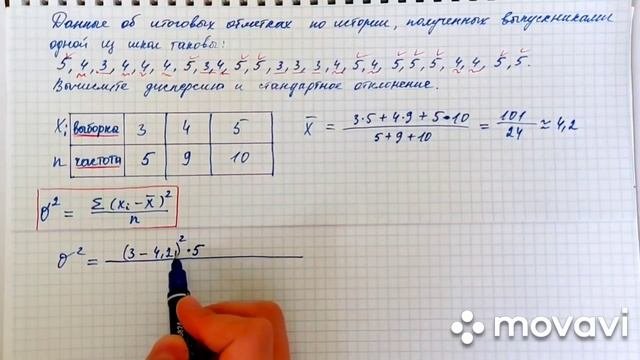 Данные об итоговых отметках по истории, полученных выпускниками
одной из школ таковы:
5, 4, 3, 4, 4, 4, 5, 3, 4, 5, 5, 3, 3, 3, 4, 5, 4, 5, 5, 5, 4, 4, 5, 5.
Вычислите дисперсию и стандартное отклонение.
Xi выборка 3 4 5
n частота 5 9 10
X̄ = (3·5 + 4·9 + 5·10)/(5 + 9 + 10) = 101/24 ≈ 4,2
σ² = Σ(xi − x̄)²/n
σ² = (3 − 4,2)²·5
movavi